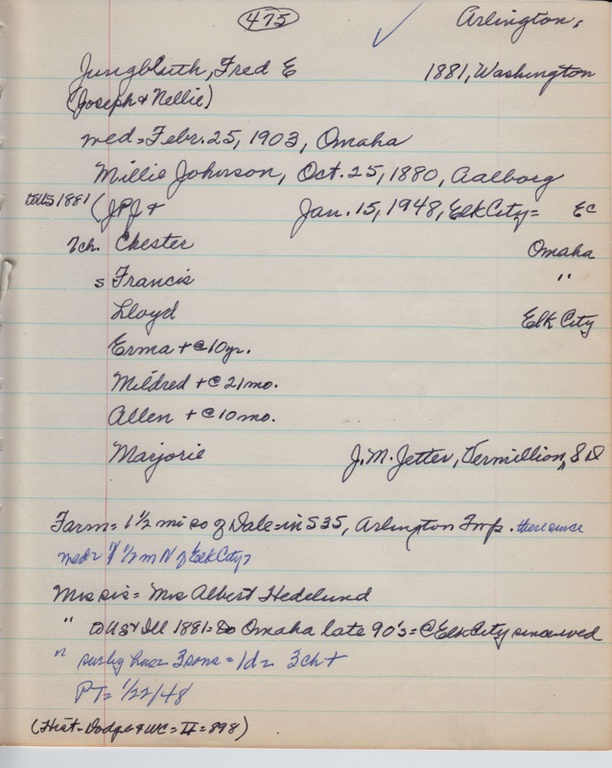 475
Arlington,
Jungbluth, Fred E 1881, Washington
(Joseph & Nellie)
med = Febr. 25, 1903, Omaha
Millie Johnson, Oct. 25, 1880, Aalborg
to US 1881 (JPJ & Jan. 15, 1948, Elk City = EC
7ch. Chester Omaha
s Francis "
Lloyd Elk City
Erma + @ 10yr.
Mildred + @ 21 mo.
Allen + @ 10 mo.
Marjorie J. M. Jetter, Vermillion, SD
Farm = 1 1/2 mi so of Dale = in S35, Arlington Twp. there since
med = 1 1/2 m N of Elk City
Mrs sis = Mrs Albert Hedelund
" to US & Ill 1881 = to Omaha late 90's = @ Elk City since wed
" surv by husb 3 sons = 1d = 3ch +
PT = 1/22/48
(Hist = Dodge & WC = II = 898)